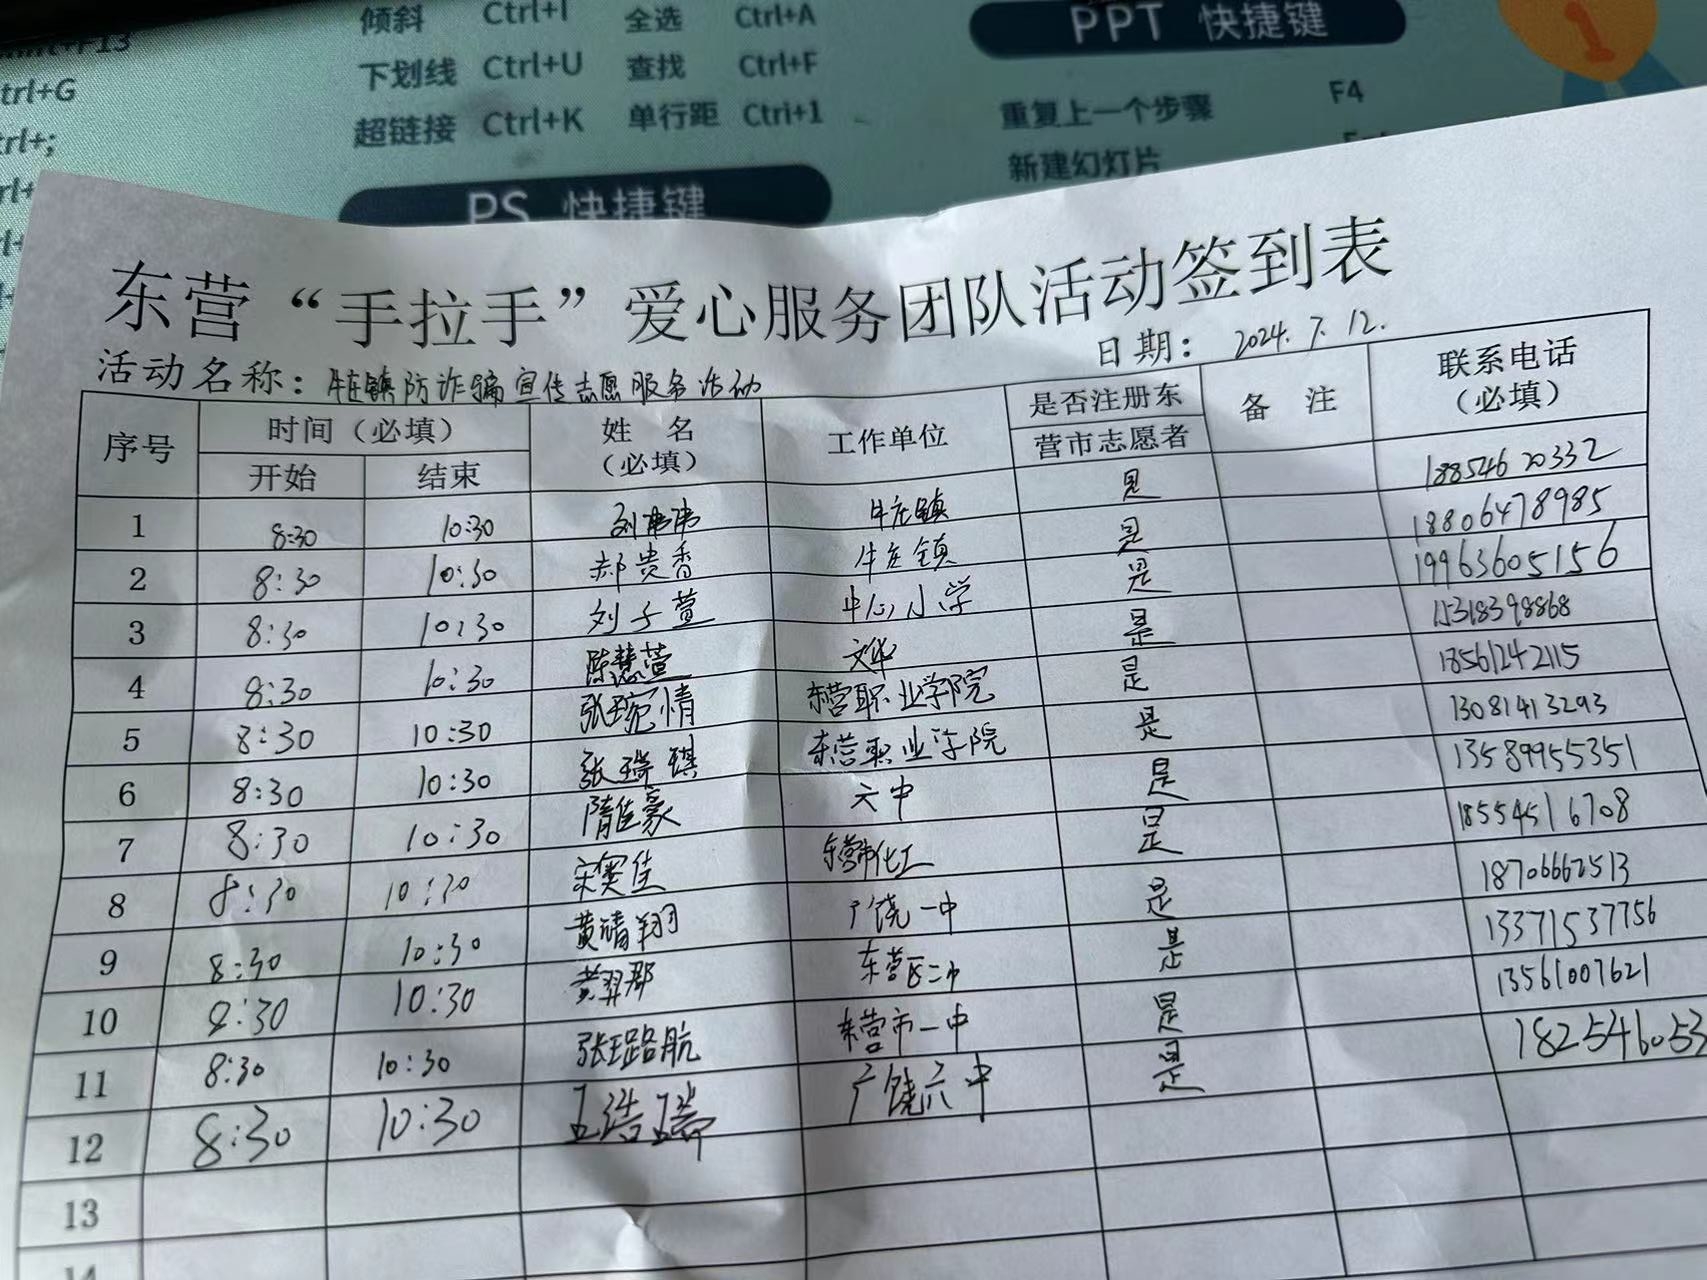 mmt+F13
trl+G
trl+;
倾斜 Ctrl+I 全选 Ctrl+A
下划线 Ctrl+U 查找 Ctrl+F
超链接 Ctrl+K 单行距 Ctrl+1
PS 快捷键
PPT 快捷键
重复上一个步骤 F4
新建幻灯片
1
东营“手拉手”爱心服务团队活动签到表
活动名称：牛庄镇防诈骗宣传志愿服务活动 日期：2024.7.12.
序号 时间（必填） 姓 名（必填） 工作单位 是否注册东营市志愿者 备 注 联系电话（必填）
开始 结束
1 8:30 10:30 刘 牛庄镇 是 18854620332
2 8:30 10:30 郝贵香 牛庄镇 是 18806478985
3 8:30 10:30 刘子萱 中心小学 是 19963605156
4 8:30 10:30 陈慧萱 文华 是 15318398868
5 8:30 10:30 张琬情 东营职业学院 是 18561242115
6 8:30 10:30 张琦琪 东营职业学院 是 13081413293
7 8:30 10:30 隋佳豪 六中 是 13589955351
8 8:30 10:30 宋奕佳 东营市化工 是 18554516708
9 8:30 10:30 黄靖翔 广饶一中 是 18706662513
10 8:30 10:30 黄羿郡 东营区二中 是 13371537756
11 8:30 10:30 张珞航 东营市一中 是 13561007621
12 8:30 10:30 王浩瑞 广饶六中 是 182546053
13
14